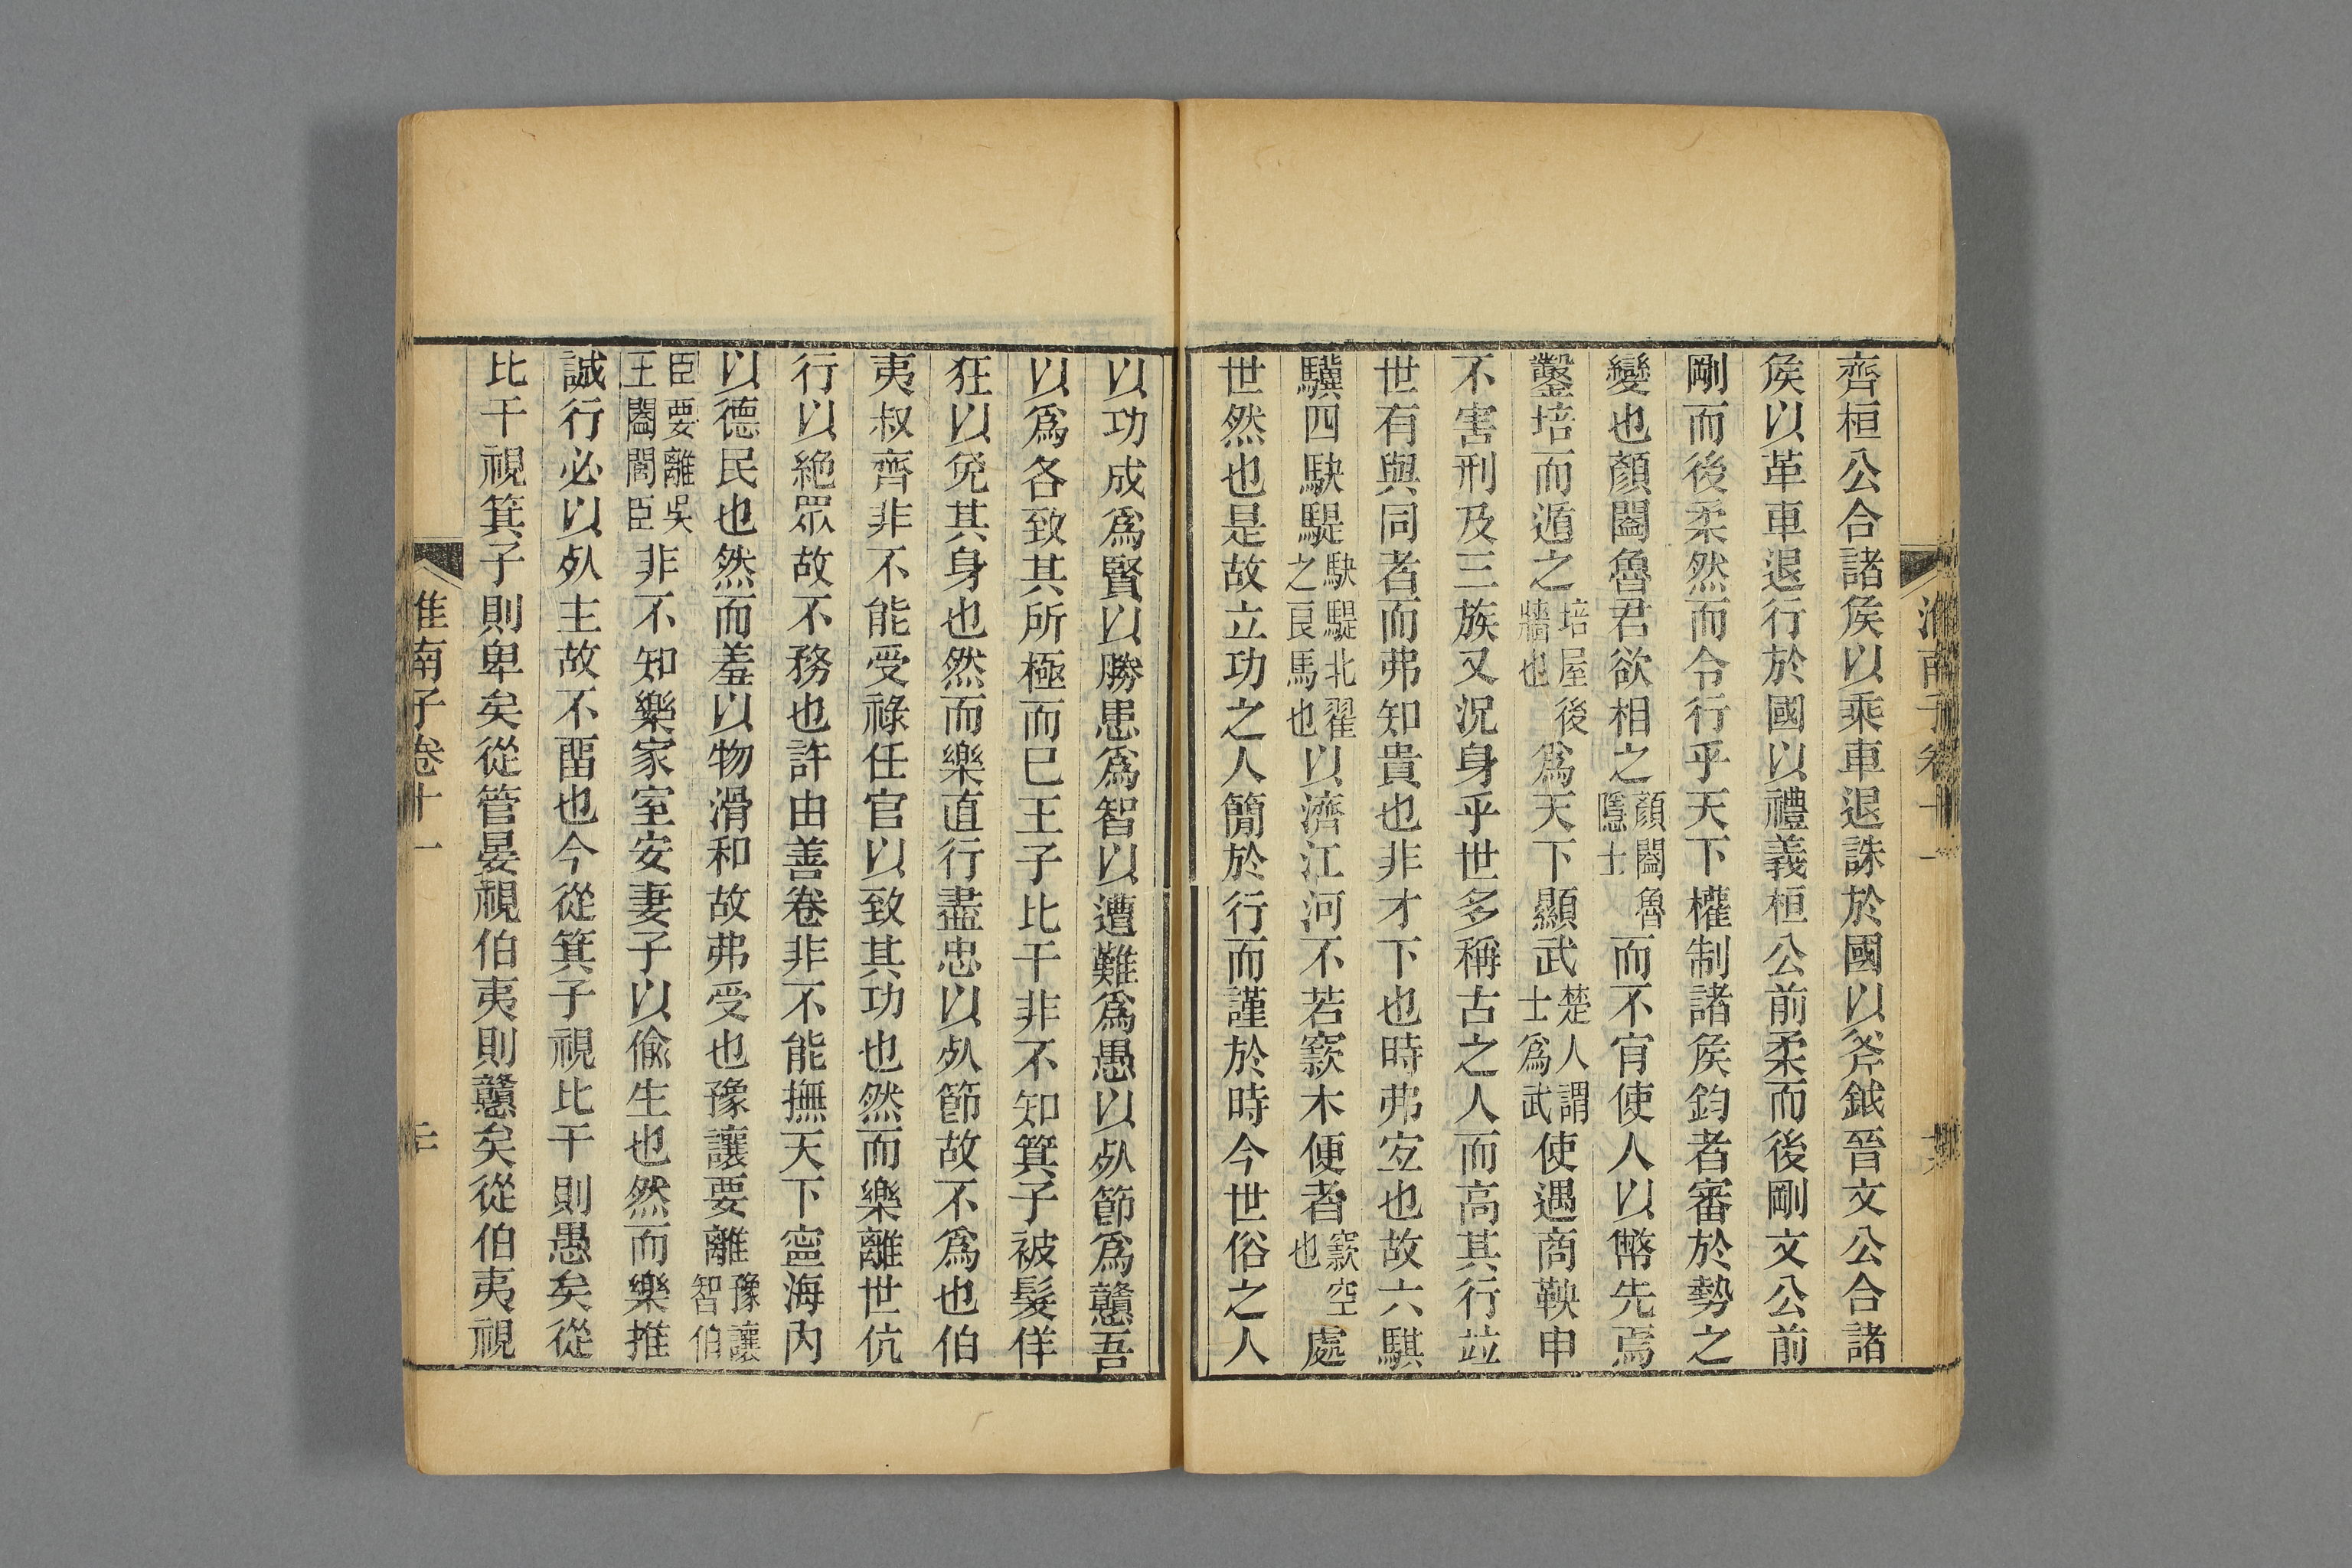 淮南子卷十一
齊桓公合諸矦以乘車退誅於國以斧鉞晉文公合諸
矦以革車退行於國以禮義桓公前柔而後剛文公前
剛而後柔然而令行乎天下權制諸矦鈞者審於勢之
變也顏闔魯君欲相之顏闔魯隱士而不肎使人以幣先焉
鑿培而遁之培屋後牆也爲天下顯武楚人謂士爲武使遇商鞅申
不害刑及三族又況身乎世多稱古之人而高其行竝
世有與同者而弗知貴也非才下也時弗宐也故六騏
驥四駃騠駃騠北翟之良馬也以濟江河不若窾木便者窾空也處
世然也是故立功之人簡於行而謹於時今世俗之人
以功成爲賢以勝患爲智以遭難爲愚以𣦸節爲戇吾
以爲各致其所極而已王子比干非不知箕子被髮佯
狂以免其身也然而樂直行盡忠以𣦸節故不爲也伯
夷叔齊非不能受祿任官以致其功也然而樂離世伉
行以絶眾故不務也許由善卷非不能撫天下寍海內
以德民也然而羞以物滑和故弗受也豫讓要離豫讓智伯
臣要離吳王闔閭臣非不知樂家室安妻子以偸生也然而樂推
誠行必以𣦸主故不畱也今從箕子視比干則愚矣從
比干視箕子則卑矣從管晏視伯夷則戇矣從伯夷視
淮南子卷十一